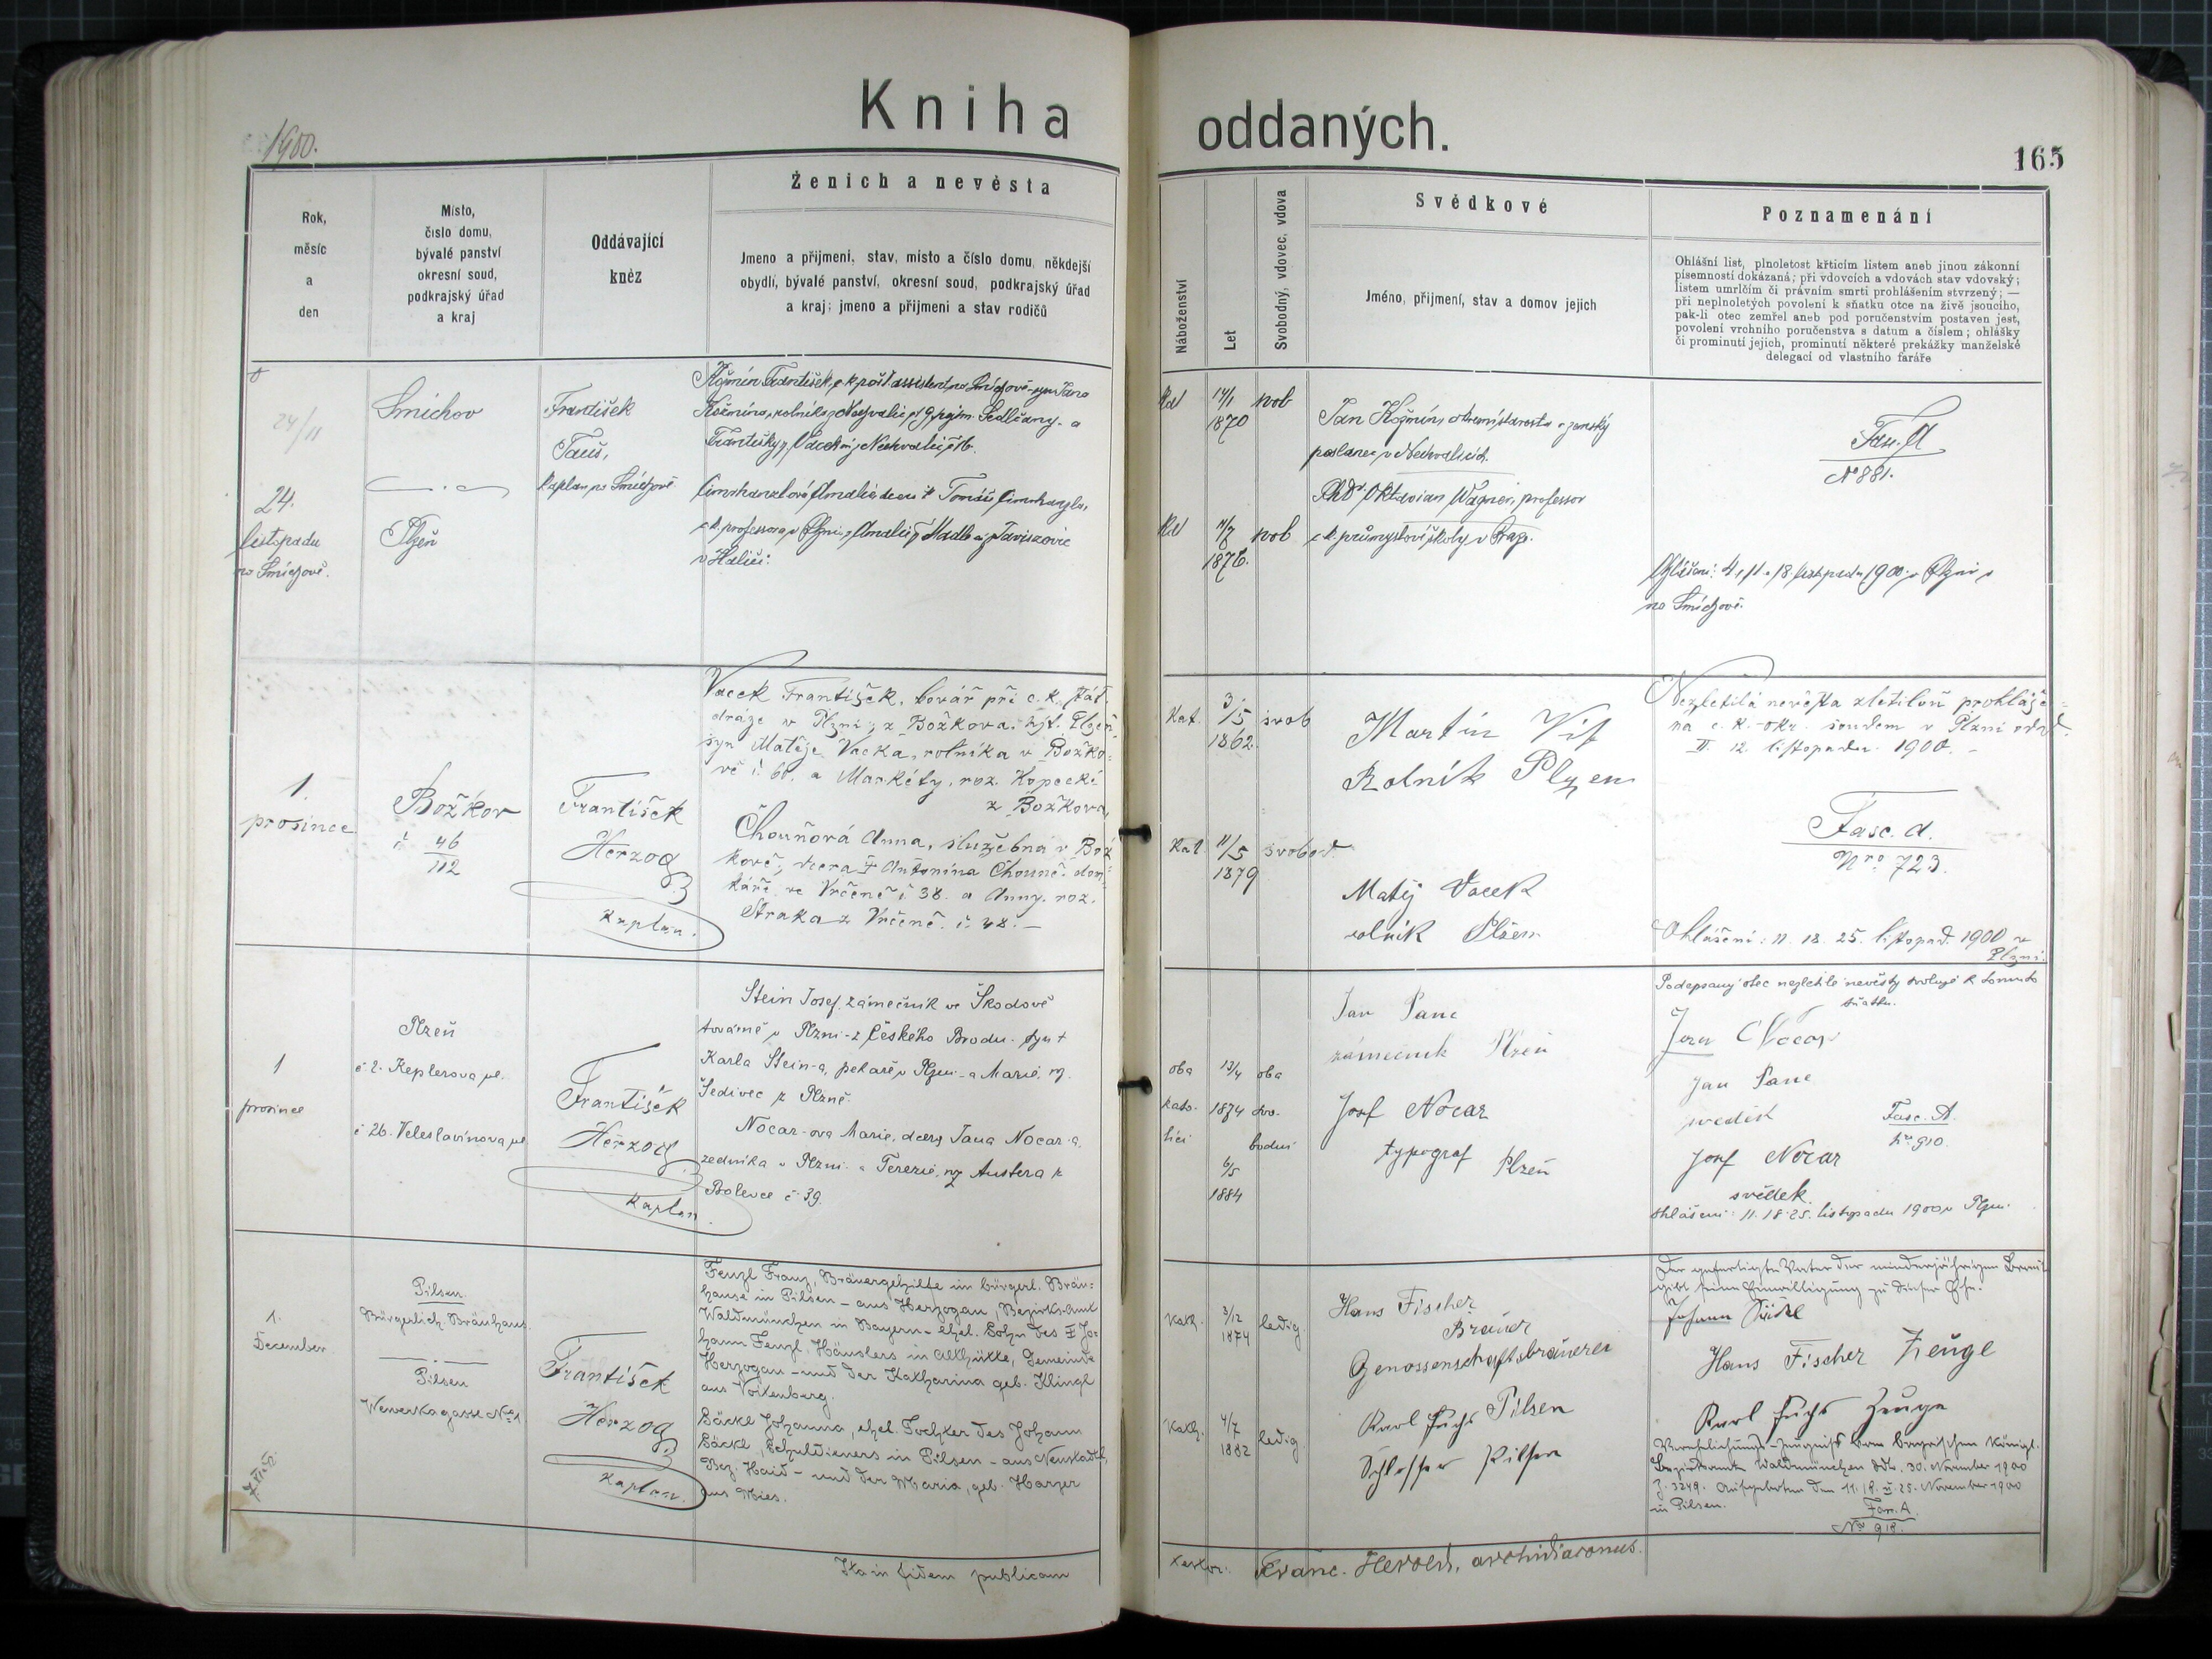 Kniha oddaných.
1900.
165
Rok,
měsíc
a
den
Místo,
číslo domu,
bývalé panství
okresní soud,
podkrajský úřad
a kraj
Oddávající
kněz
Ženich a nevěsta
Jmeno a přijmeni, stav, místo a číslo domu, někdejší
obydlí, bývalé panství, okresní soud, podkrajský úřad
a kraj; jmeno a přijmeni a stav rodičů
Náboženství
Let
Svobodný, vdovec, vdova
Svědkové
Jméno, přijmení, stav a domov jejich
Poznamenání
Ohlášní list, plnoletost křticím listem aneb jinou zákonní
písemností dokázaná; při vdovcích a vdovách stav vdovský;
listem umrlčím či právním smrti prohlášením stvrzený; —
při neplnoletých povolení k sňatku otce na živě jsoucího,
pak-li otec zemřel aneb pod poručenstvím postaven jest,
povolení vrchního poručenstva s datum a číslem; ohlášky
či prominutí jejich, prominutí některé prekážky manželské
delegací od vlastního faráře
24/11
24.
listopadu
na Smíchově.
Smíchov
Plzeň
František
Tauš,
kaplan na Smíchově
Kožmín František, c. k. pošt. assistent na Smíchově - syn Jana
Kožmína, rolníka z Nechvalic č 9, hejtm. Sedlčany - a
Františky,
Cimrhanzlová Amalie, dcera † Tomáše Cimrhanzla,
c. k. professora v Plzni, a Amalie
v Haliči.
14/1
1870
svob
11/7
1876.
svob
Jan Kožmín, okresní starosta a zemský
poslanec v Nechvalicích.
PhDr. Oktavian Wagner, professor
c. k. průmyslové školy v Praze.
Fasc. A
N° 881.
Ohlášeni: 4, 11 a 18 listopadu 1900 v Plzni a
na Smíchově.
1.
prosince
Božkov
č. 46
112
František
Herzog
kaplan.
Vacek František, kovář při c. k. stát.
dráze v Plzni; z Božkova, hjt. Plzeň,
syn Matěje Vacka, rolníka v Božko-
vě č. 60. a Markéty, roz. Kopecké
z Božkova,
Chouňová Anna, služebná v Bož-
kově, dcera † Antonína Chouně, dom-
káře ve Vrčeně č 38. a Anny, roz.
Straka z Vrčeně č. 48. —
Kat.
3/5
1862.
svob
Kat
11/5
1879
svobod.
Martin Vít
Rolník Plzen
Matěj Vacek
rolník Plžen
Nezletilá nevěsta zletilou prohláše-
na c. k. okr. soudem v Plzni odd.
II. 12. listopadu 1900. —
Fasc. A.
Nro. 723.
Ohlášeni: 11. 18. 25. listopad. 1900 v
Plzni.
1
prosince
Plzeň
č. 2. Keplerova ul.
č 26. Veleslavínova ul
František
Herzog
kaplan.
Stein Josef, zámečník ve Škodově
továrně v Plzni - z Českého Brodu, syn †
Karla Stein-a, pekaře v Plzni - a Marie, roz.
Šedivec z Plzně.
Nocar-ova Marie, dcera Jana Nocar-a,
zedníka v Plzni - a Terezie, roz Austera z
Bolevce č 39.
oba
kato-
líci
13/4
1874
6/5
1884
oba
svo-
bodni
Jan Panc
zámečník Plzeň
Josef Nocar
typograf Plzeň
Podepsaný otec nezletilé nevěsty svoluje k tomuto
sňatku.
Jan Nocar
Jan Panc
svědek
Fasc. A.
Nro 910.
Josef Nocar
svědek.
Ohlášeni: 11. 18. 25. listopadu 1900 v Plzni.
1.
December.
Pilsen
Bürgerlich. Bräuhaus.
Pilsen
Wewerkagasse No 1
František
Herzog
kaplan.
Fenzl Franz, Bräuergehilfe im bürgerl. Bräu-
hause in Pilsen - aus Herzogau, Bezirksamt
Waldmünchen in Bayern - ehel. Sohn des † Jo-
hann Fenzl, Häuslers in Althütte, Gemeinde
Herzogau - und der Katharina geb. Klingl
aus Voitenberg.
Säckl Johanna, ehel. Tochter des Johann
Säckl, Schuldieners in Pilsen - aus Neustadtl,
Bez. Haid - und der Maria, geb. Harzer
aus Mies.
Kath.
3/12
1874
ledig
Kath.
4/7
1882
ledig
Hans Fischer
Brauer
Genossenschaftsbrauerei
Pilsen
Karl Fuchs
Schlosser Pilsen
Der gefertigte Vater der minderjährigen Braut
gibt seine Einwilligung zu dieser Ehe.
Johann Säckl
Hans Fischer Zeuge
Karl Fuchs Zeuge
Verehelichungs-Zeugniß vom bayrischen Königl.
Bezirksamte Waldmünchen ddto. 30. November 1900
Z. 3249. Aufgeboten den 11. 18. u. 25. November 1900
in Pilsen.
Fasc. A.
Nro 918.
Ita in fidem publicam
testor: Franc. Herold, archidiaconus.